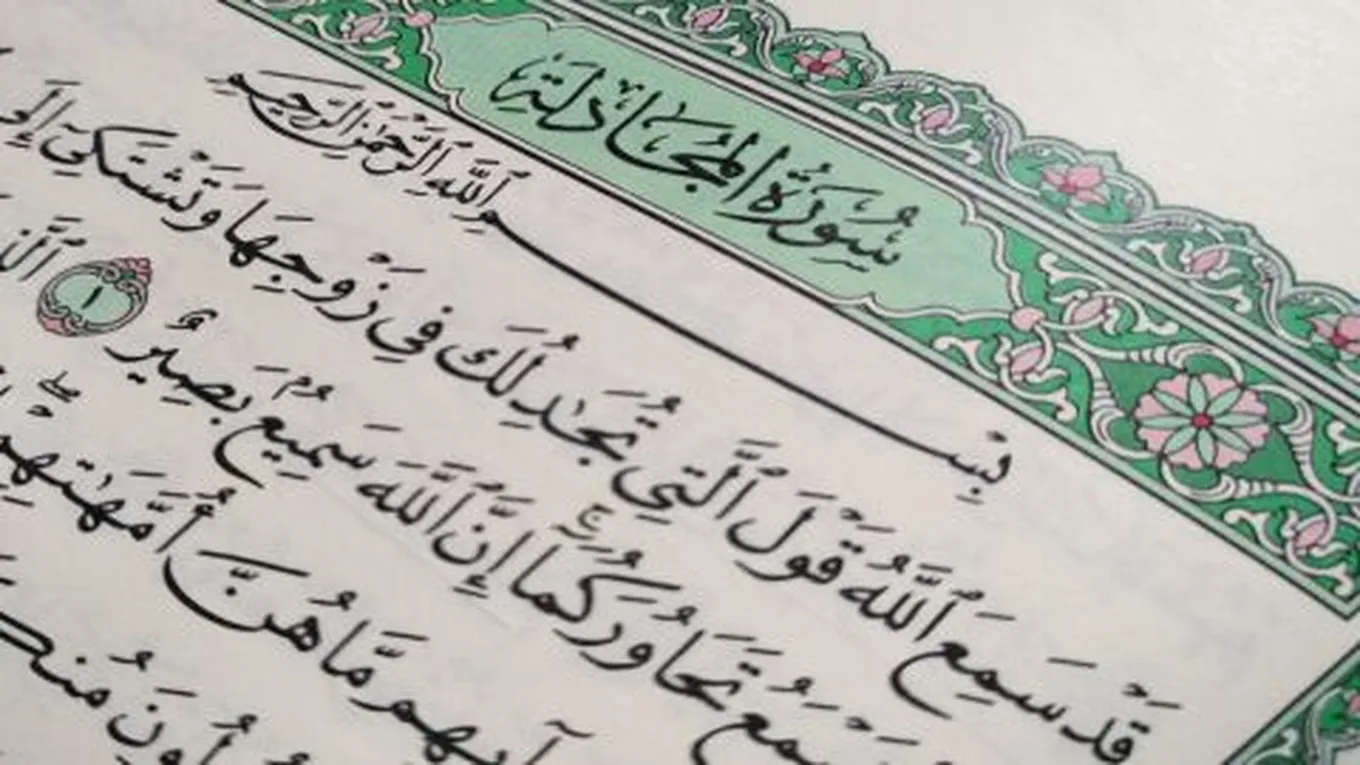 سُورَةُ المُجَادلَةِ
بِسْمِ ٱللَّهِ ٱلرَّحْمَٰنِ ٱلرَّحِيمِ
قَدْ سَمِعَ ٱللَّهُ قَوْلَ ٱلَّتِي تُجَٰدِلُكَ فِي زَوْجِهَا وَتَشْتَكِيٓ إِلَى
يَسْمَعُ تَحَاوُرَكُمَآ ۚ إِنَّ ٱللَّهَ سَمِيعٌۢ بَصِيرٌ ١
مَّا هُنَّ أُمَّهَٰتِهِمْ ۖ